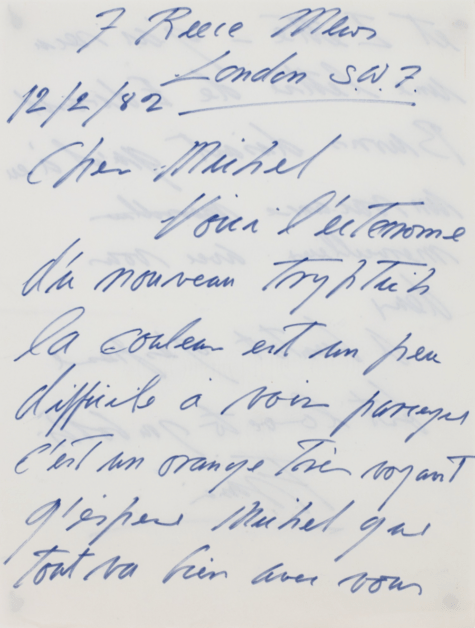 7 Reece Mews
London S.W.7.
12/2/82
Cher Michel
Voici
du nouveau tryptich
la couleur est un peu
difficile à voir parceque
c'est un orange très voyant
j'espere Michel que
tout va bien avec vous